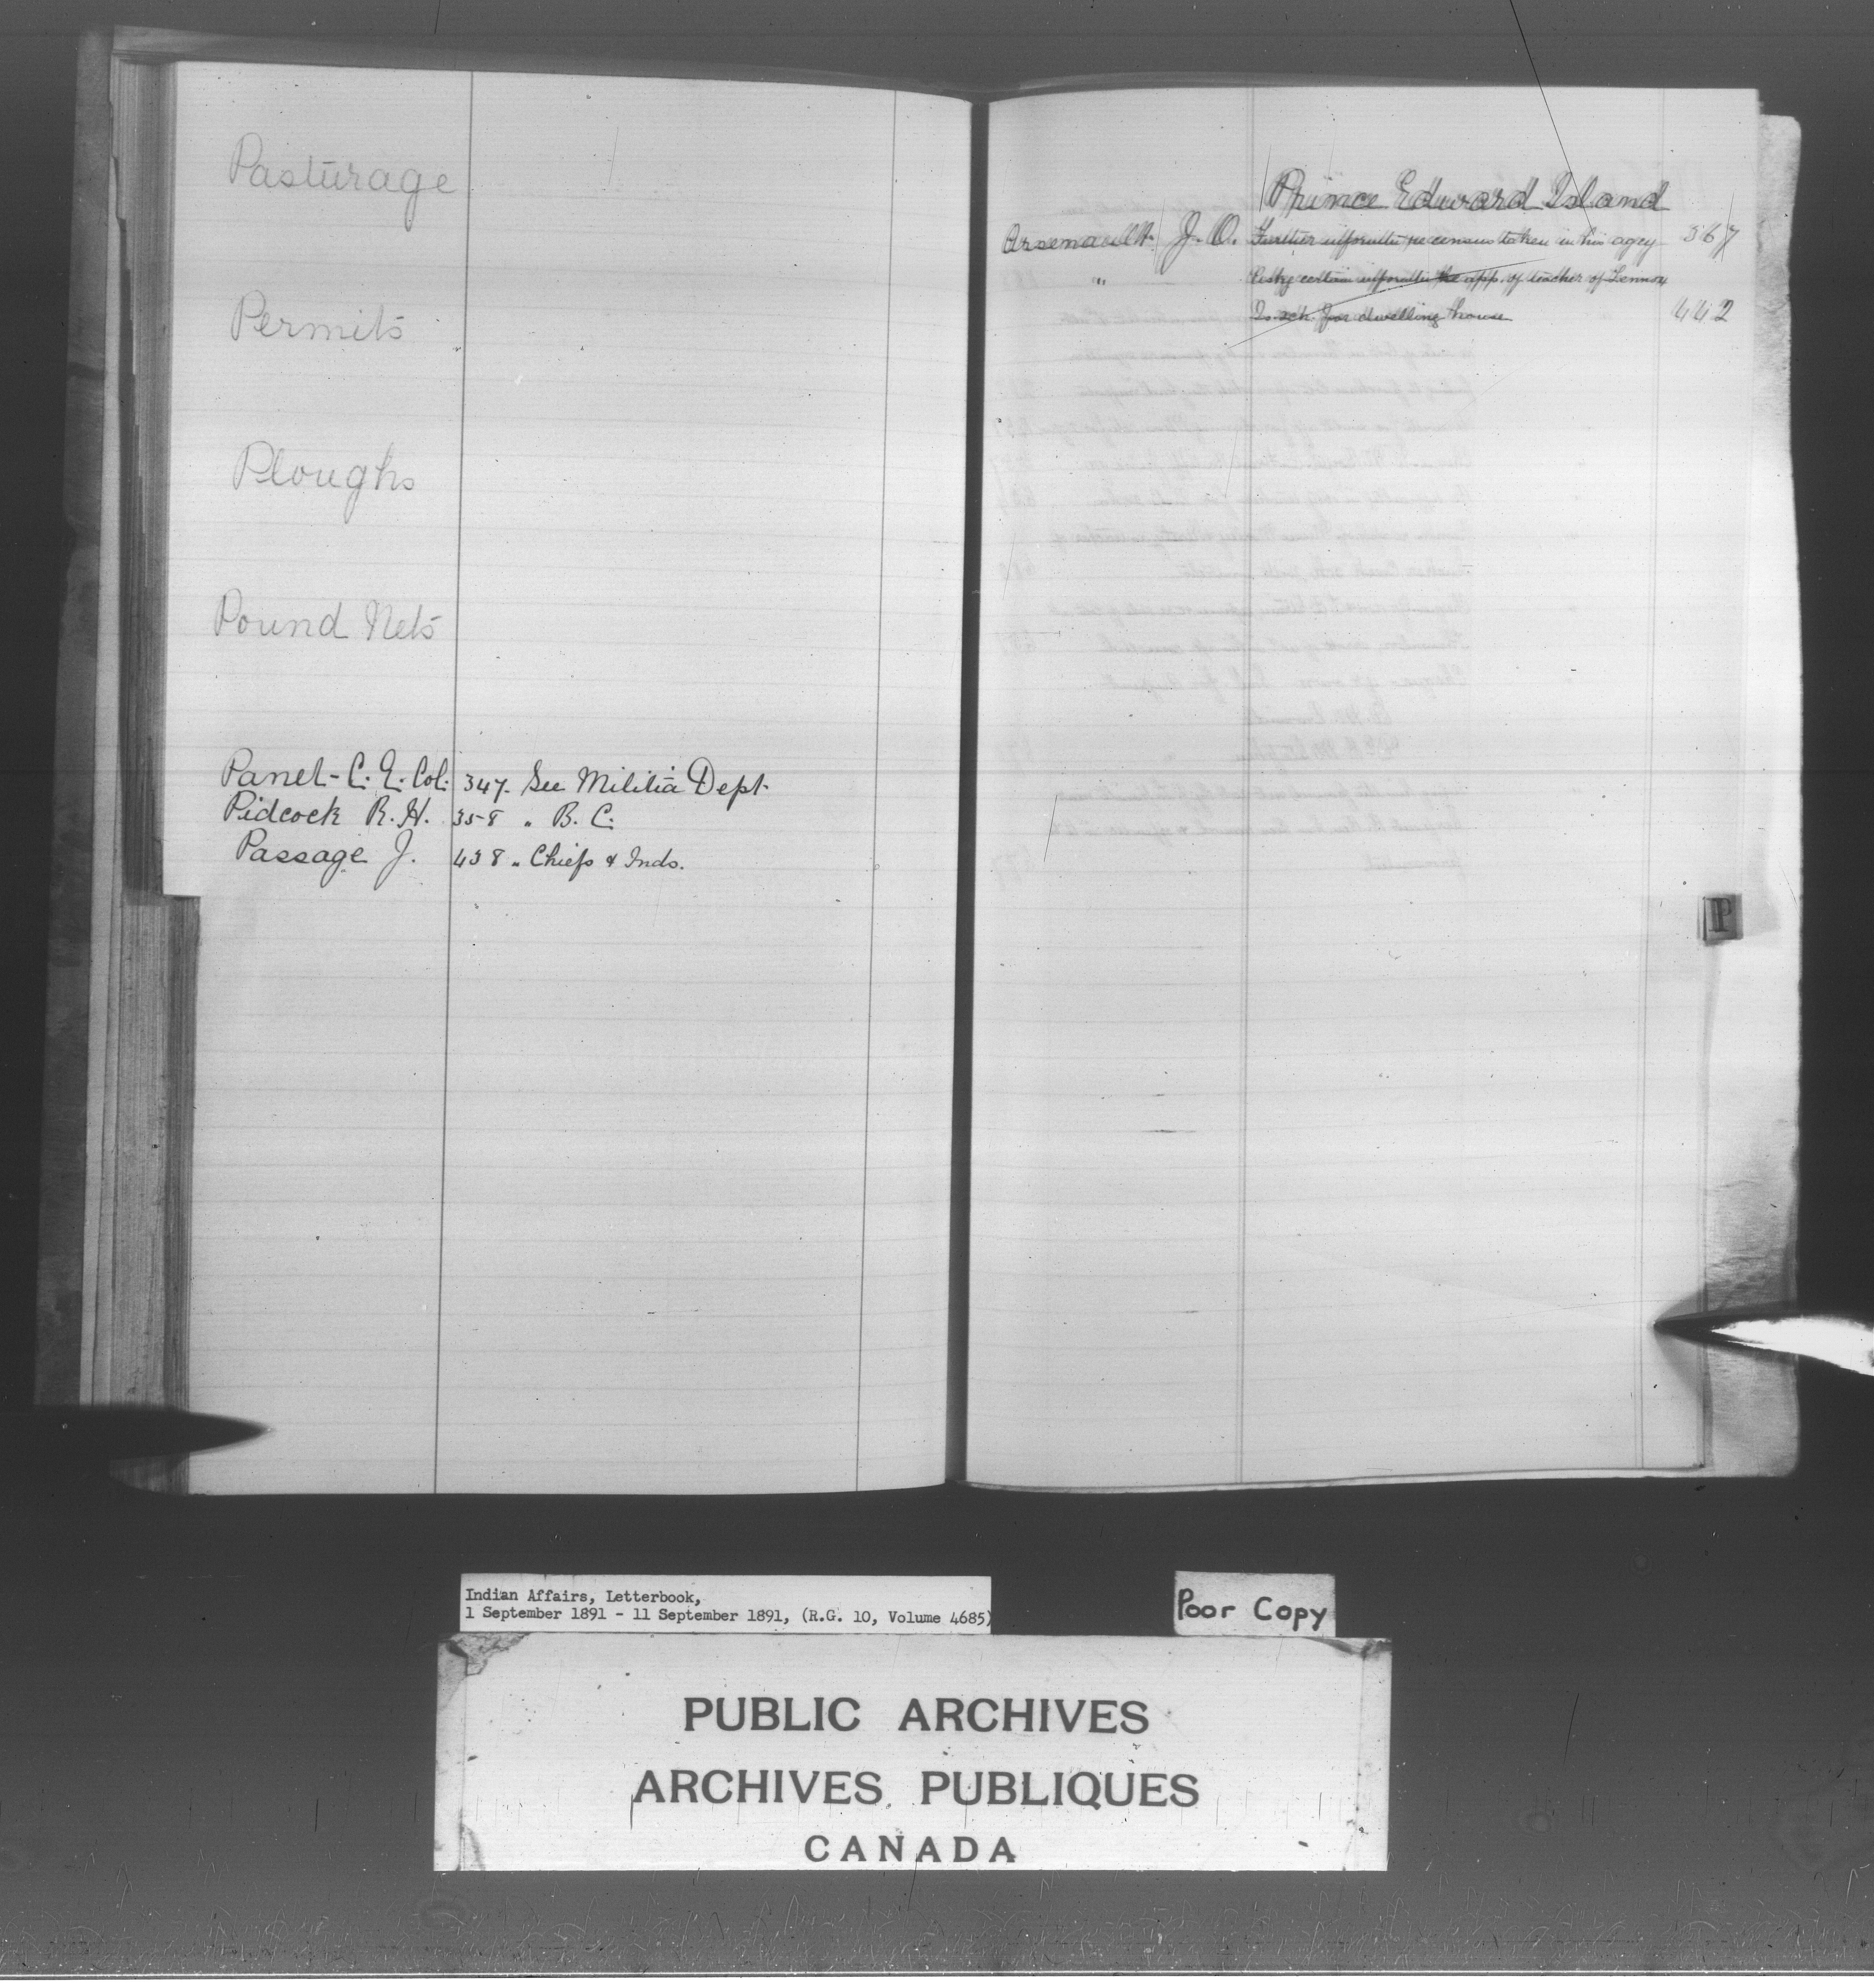 Pasturage
Permits
Ploughs
Pound Nets
Panet - C. E. Col. 347. See Militia Dept.
Pidcock R. H. 358 " B. C.
Passage J. 438 " Chiefs & Inds.
Prince Edward Island
Arsenault J. O. Further re census taken in his agcy 367
" certain app. of teacher of Lennox
Is. sch. for dwelling house 442
P
Indian Affairs, Letterbook,
1 September 1891 - 11 September 1891, (R.G. 10, Volume 4685)
Poor Copy
PUBLIC ARCHIVES
ARCHIVES PUBLIQUES
CANADA